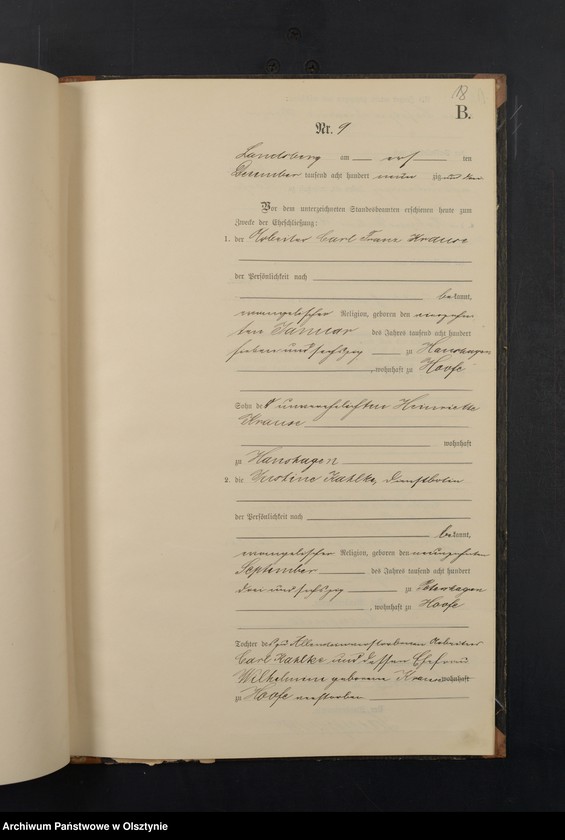 18
B.
Nr. 9
Landsberg am ten
Dezember tausend acht hundert neun zig und drei
Vor dem unterzeichneten Standesbeamten erschienen heute zum
Zwecke der Eheschließung:
1. der Arbeiter Carl Franz Krause
der Persönlichkeit nach
bekannt,
evangelischer Religion, geboren den
ten Januar des Jahres tausend acht hundert
sieben und sechszig zu Hanshagen
, wohnhaft zu Hoofe
Sohn der unverehelichten Henriette
Krause
wohnhaft
zu Hanshagen
2. die Justine Kahlke, Dienstbotin
der Persönlichkeit nach
bekannt,
evangelischer Religion, geboren den neunzehnten
September des Jahres tausend acht hundert
drei und sechszig zu Petershagen
, wohnhaft zu Hoofe
Tochter des verstorbenen Arbeiters
Carl Kahlke und dessen Ehefrau
Wilhelmine geborene Krause wohnhaft
zu Hoofe verstorben
Archiwum Państwowe w Olsztynie